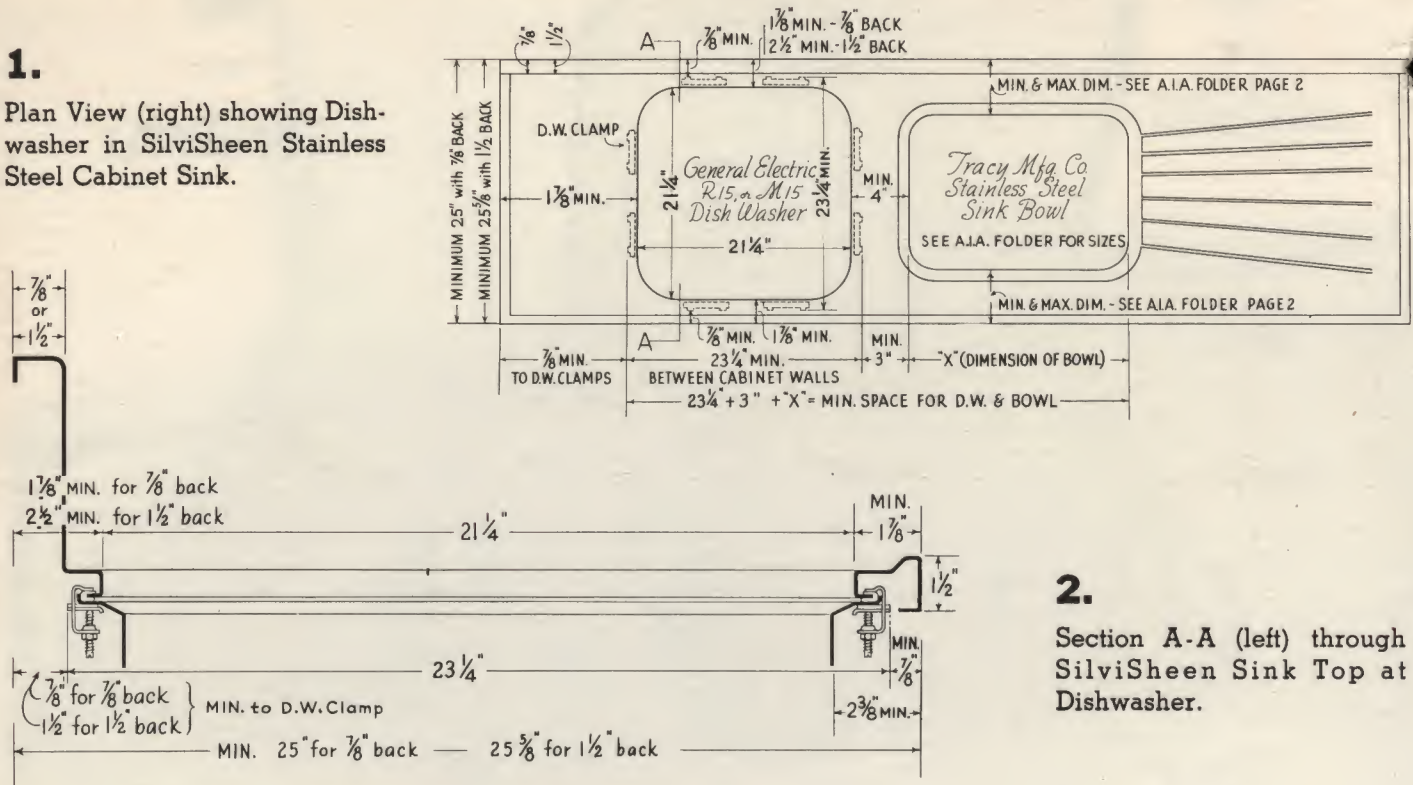 1.
Plan View (right) showing Dish-
washer in SilviSheen Stainless
Steel Cabinet Sink.
7/8"
1 1/2"
A
7/8" MIN.
1 7/8 MIN. - 7/8" BACK
2 1/2" MIN. - 1 1/2" BACK
MINIMUM 25" with 7/8" BACK
MINIMUM 25 5/8" with 1 1/2 BACK
D.W. CLAMP
1 7/8" MIN.
21 1/4"
General Electric
R15, or M15
Dish Washer
21 1/4"
23 1/4" MIN.
MIN.
4"
MIN. & MAX. DIM. - SEE A.I.A. FOLDER PAGE 2
Tracy Mfg Co
Stainless Steel
Sink Bowl
SEE A.I.A. FOLDER FOR SIZES
MIN. & MAX. DIM. - SEE A.I.A. FOLDER PAGE 2
A
7/8" MIN.
1 7/8" MIN.
7/8" MIN.
TO D.W. CLAMPS
23 1/4" MIN.
BETWEEN CABINET WALLS
MIN.
3"
"X" (DIMENSION OF BOWL)
23 1/4" + 3" + "X" = MIN. SPACE FOR D.W. & BOWL
7/8"
or
1 1/2"
1 7/8" MIN. for 7/8" back
2 1/2" MIN. for 1 1/2" back
21 1/4"
MIN.
1 7/8"
1 1/2"
23 1/4"
MIN.
7/8"
2 3/8" MIN.
7/8" for 7/8" back
1 1/2" for 1 1/2" back
MIN. to D.W. Clamp
MIN. 25" for 7/8" back — 25 5/8" for 1 1/2" back
2.
Section A-A (left) through
SilviSheen Sink Top at
Dishwasher.